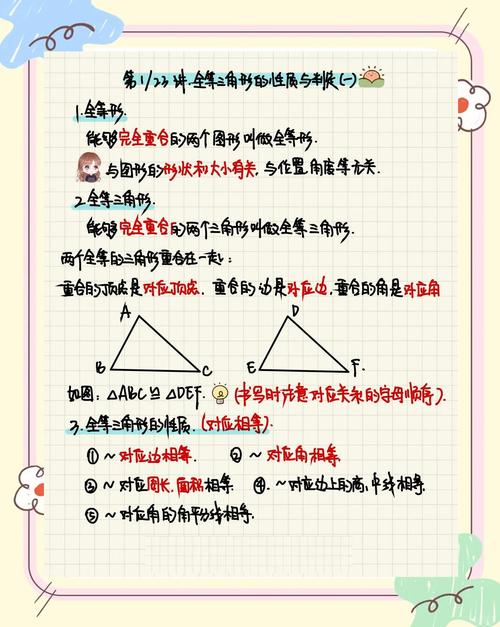 第1/23讲.全等三角形的性质与判定(一)
1.全等形.
能够完全重合的两个图形叫做全等形.
与图形的形状和大小有关,与位置角度等无关.
2.全等三角形.
能够完全重合的两个三角形叫做全等三角形.
两个全等的三角形重合在一起:
重合的顶点是对应顶点.重合的边是对应边,重合的角是对应角
A D
B C E F.
如图:△ABC≌△DEF. (书写时注意对应关系的字母顺序).
3.全等三角形的性质.(对应相等).
①~对应边相等. ②~对应角相等.
③~对应周长.面积相等. ④.~对应边上的高,中线相等.
⑤~对应角的角平分线相等.